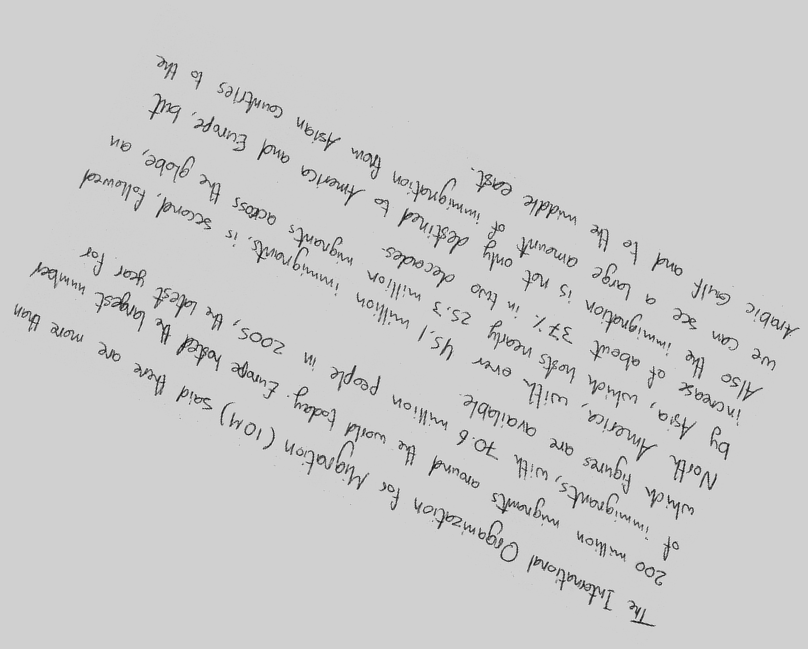 The International Organization for Migration (IOM) said there are more than
200 million migrants around the world today. Europe hosted the largest number
of immigrants, with 70.6 million people in 2005, the latest year for
which figures are available.
North America, with over 45,1 million immigrants, is second, followed
by Asia, which hosts nearly 25,3 million migrants across the globe, an
increase of about 37% in two decades.
Also the immigration is not only destined to America and Europe, but
we can see a large amount of immigration from Asian countries to the
Arabic Gulf and to the middle east.